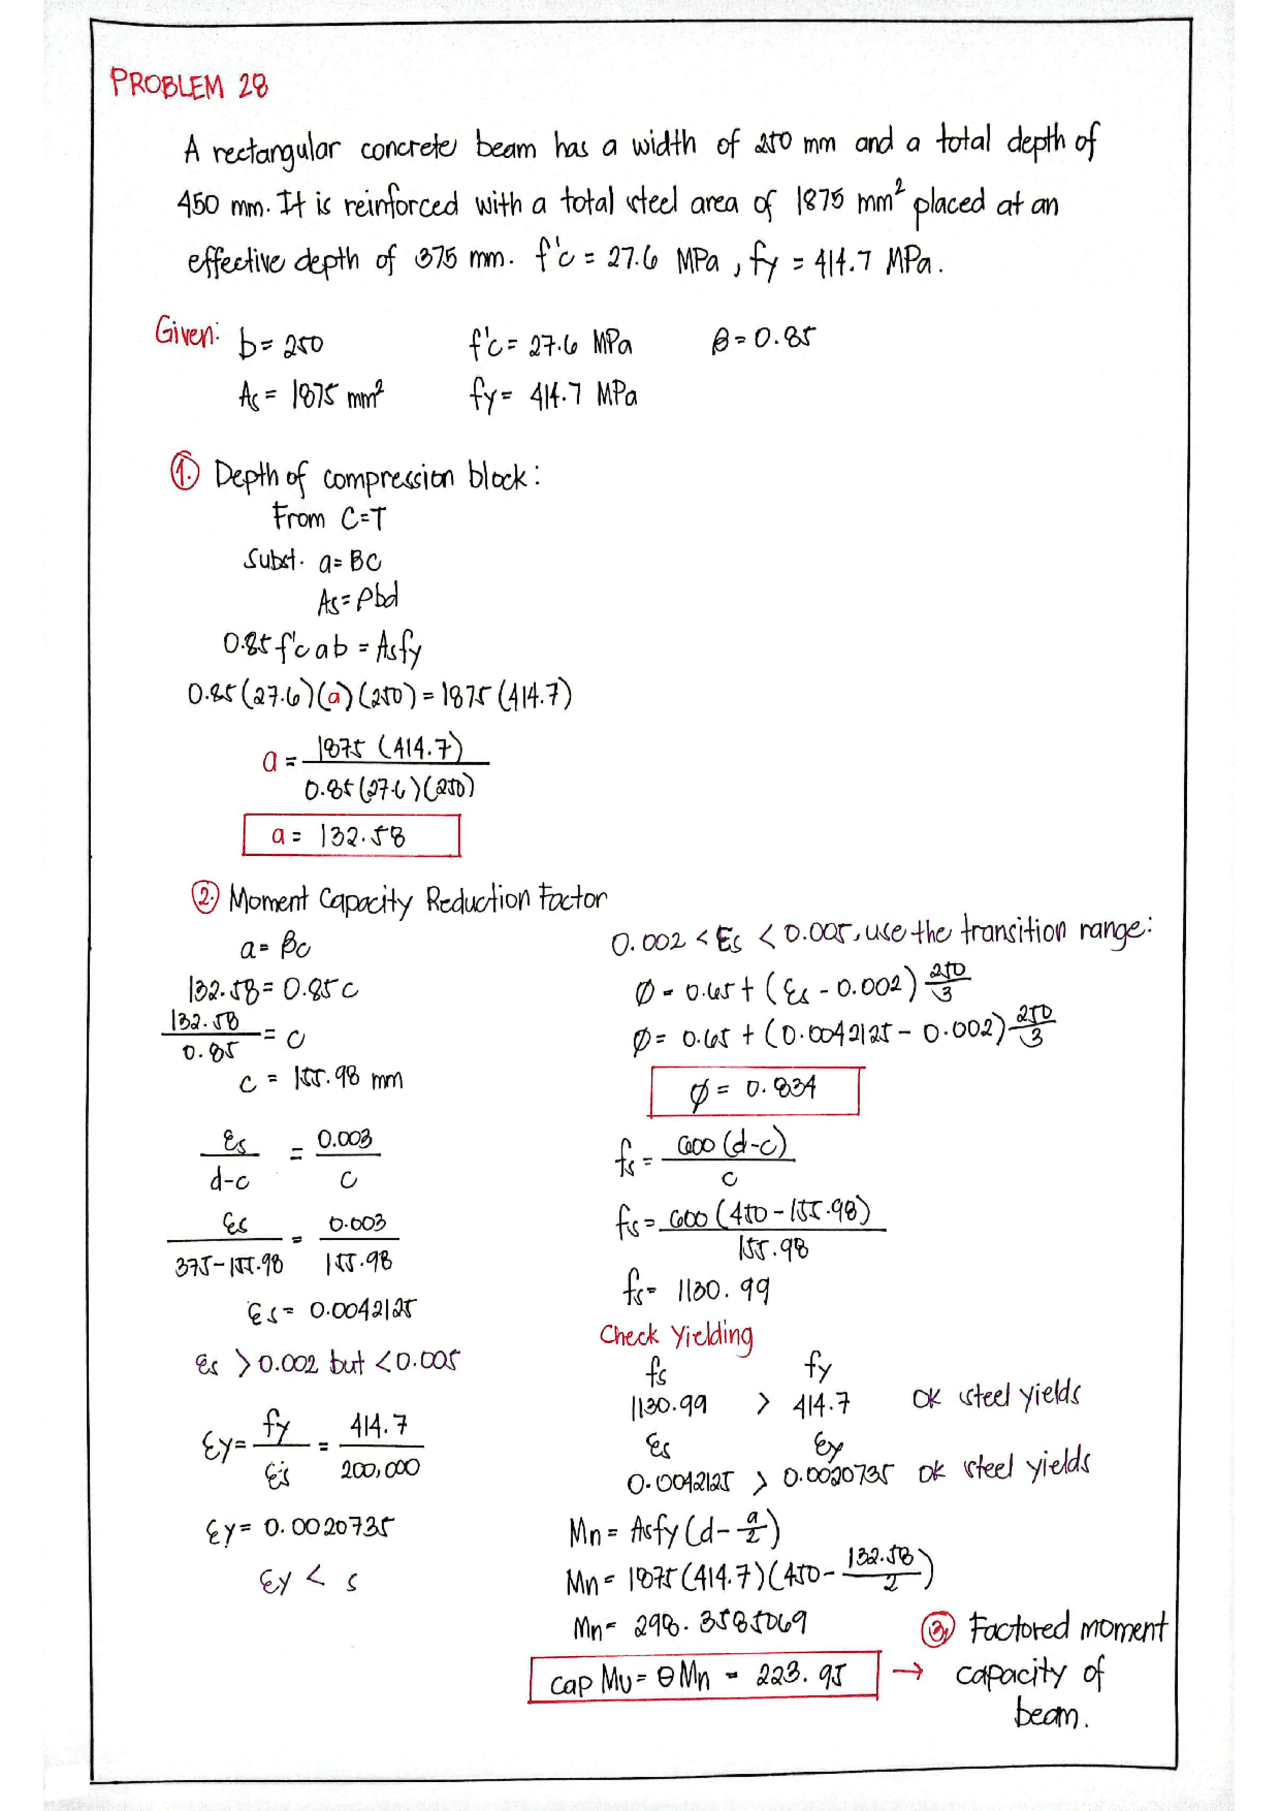 PROBLEM 28
A rectangular concrete beam has a width of 250 mm and a total depth of
450 mm. It is reinforced with a total steel area of 1875 mm² placed at an
effective depth of 375 mm. f'c = 27.6 MPa, fy = 414.7 MPa.
Given: b = 250 f'c = 27.6 MPa β = 0.85
As = 1875 mm² fy = 414.7 MPa
1. Depth of compression block:
From C=T
Subst. a = βc
As = ρbd
0.85 f'c a b = Asfy
0.85(27.6)(a)(250) = 1875(414.7)
a = 1875 (414.7)
0.85(27.6)(250)
a = 132.58
2. Moment Capacity Reduction Factor
a = βc
132.58 = 0.85c
132.58 = c
0.85
c = 155.98 mm
εs = 0.003
d-c c
εs = 0.003
375-155.98 155.98
εs = 0.0042125
εs > 0.002 but < 0.005
εy = fy = 414.7
Es 200,000
εy = 0.0020735
εy < s
0.002 < εs < 0.005, use the transition range:
Ø = 0.65 + (εs - 0.002) 250
3
Ø = 0.65 + (0.0042125 - 0.002) 250
3
Ø = 0.834
fs = 600 (d-c)
c
fs = 600 (450-155.98)
155.98
fs = 1130.99
Check Yielding
fs fy
1130.99 > 414.7 OK steel yields
εs εy
0.0042125 > 0.0020735 OK steel yields
Mn = Asfy (d - a/2)
Mn = 1875(414.7)(450 - 132.58/2)
Mn = 298.3585069
cap Mu = θMn = 223.95 →
3. Factored moment
capacity of
beam.